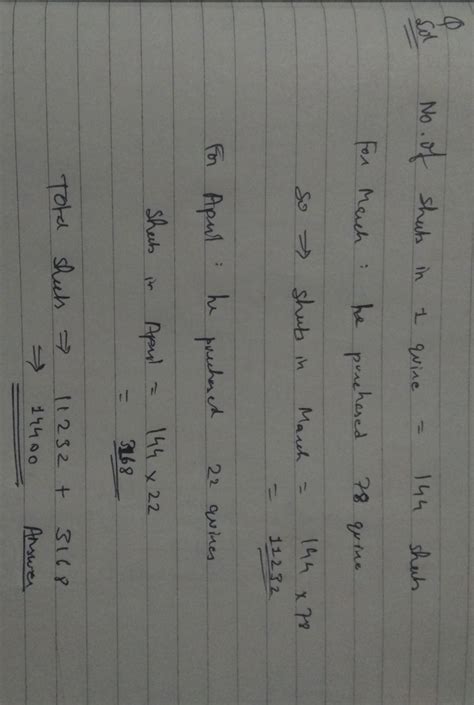 Q
Sol No. of sheets in 1 quire = 144 sheets
For March : he purchased 78 quires
So ⇒ sheets in March = 144 x 78
= 11232
For April : he purchased 22 quires
Sheets in April = 144 x 22
= 3168
Total sheets ⇒ 11232 + 3168
⇒ 14400 Answer